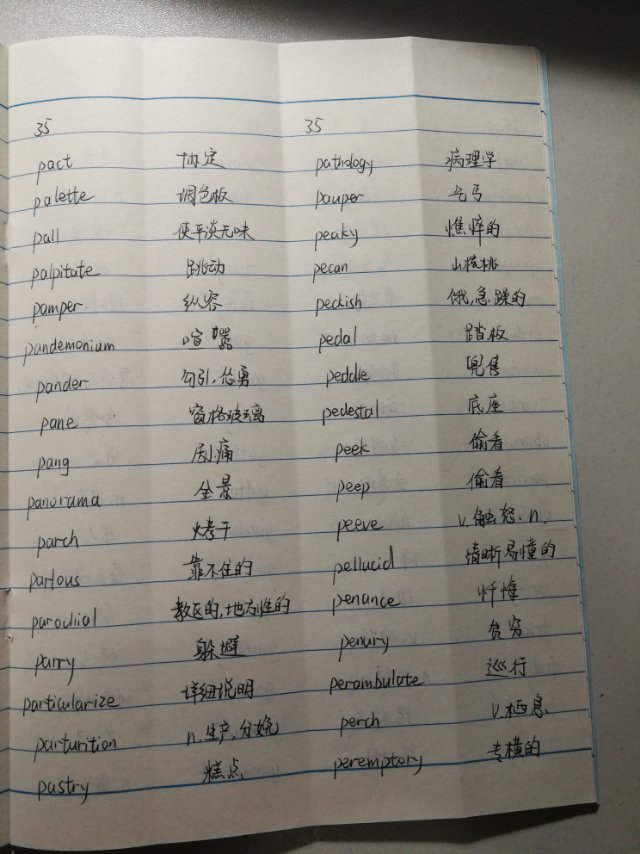 35 35
pact 协定 pathology 病理学
palette 调色板 pauper 乞丐
pall 使平淡无味 peaky 憔悴的
palpitate 跳动 pecan 山核桃
pamper 纵容 peckish 饿,急躁的
pandemonium 喧嚣 pedal 踏板
pander 勾引,怂勇 peddle 兜售
pane 窗格玻璃 pedestal 底座
pang 剧痛 peek 偷看
panorama 全景 peep 偷看
parch 烤干 peeve v.触怒.n.
parlous 靠不住的 pellucid 清晰易懂的
parochial 教区的,地方性的 penance 忏悔
parry 躲避 penury 贫穷
particularize 详细说明 perambulate 巡行
parturition n.生产,分娩 perch v.栖息
pastry 糕点 peremptory 专横的